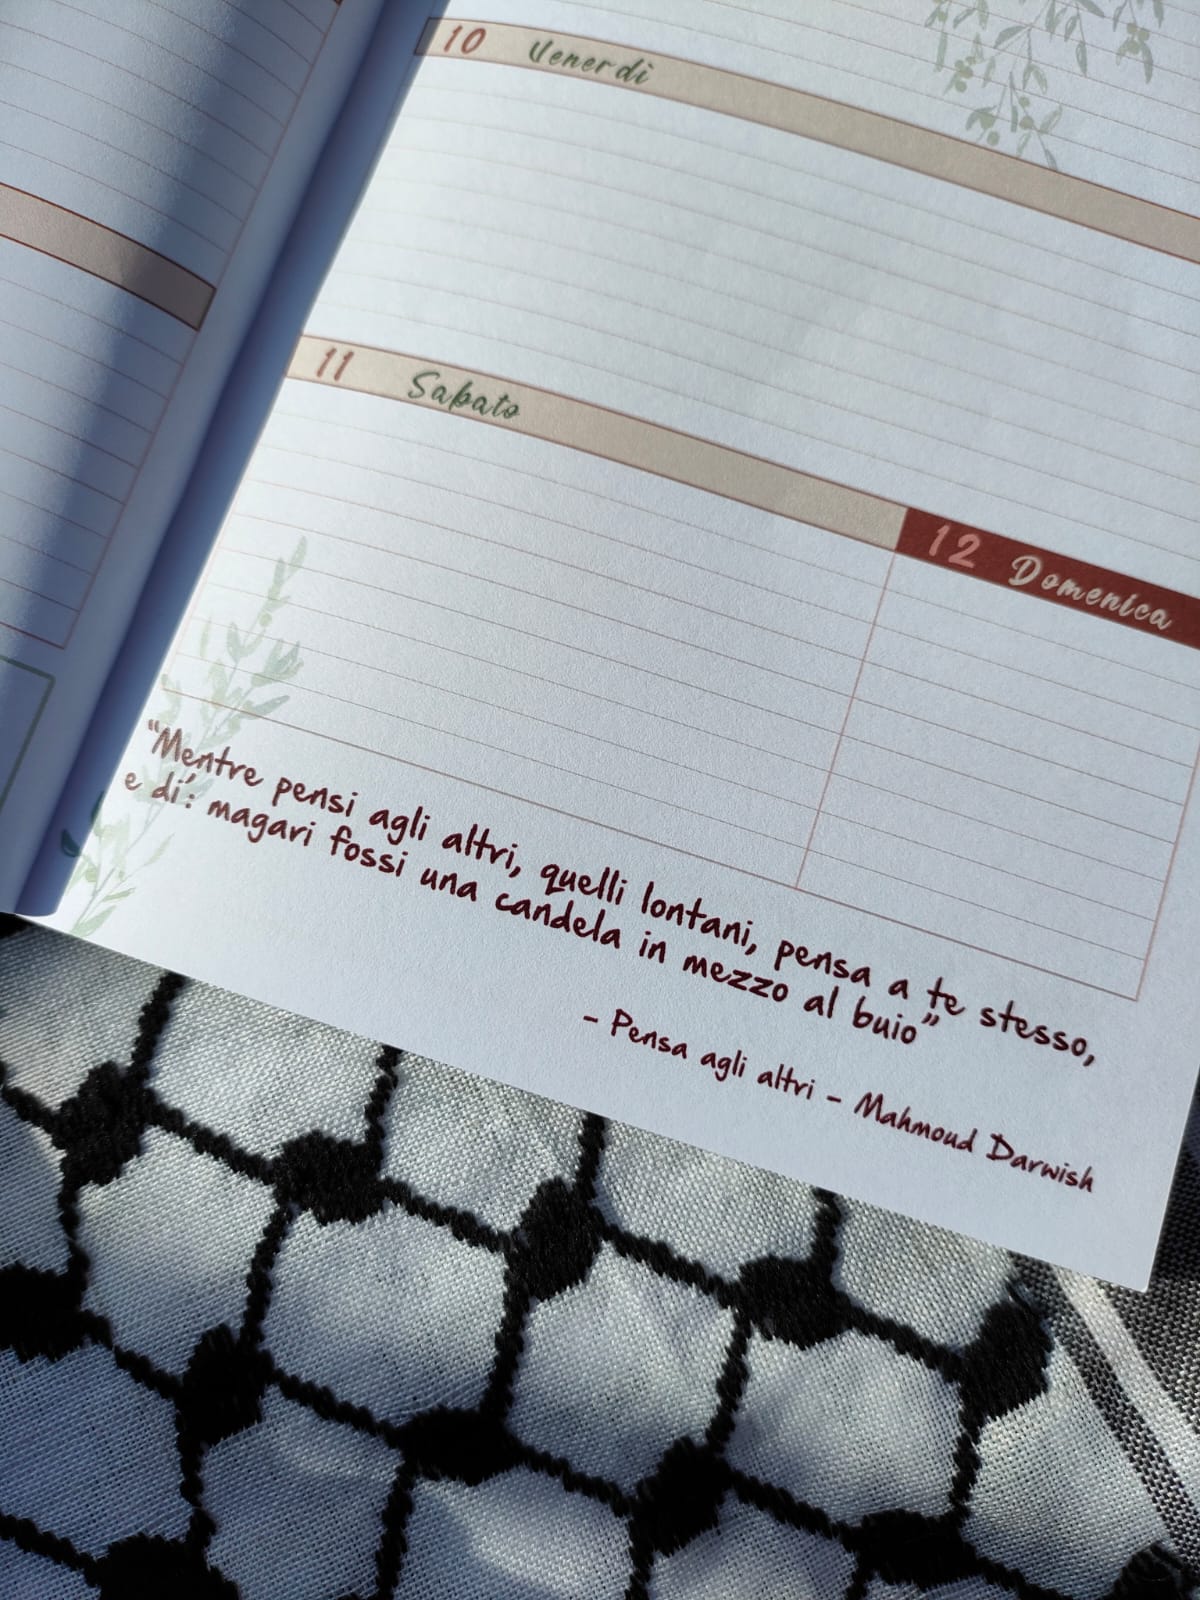 10 Venerdì
11 Sabato
12 Domenica
“Mentre pensi agli altri, quelli lontani, pensa a te stesso,
e di': magari fossi una candela in mezzo al buio”
- Pensa agli altri - Mahmoud Darwish